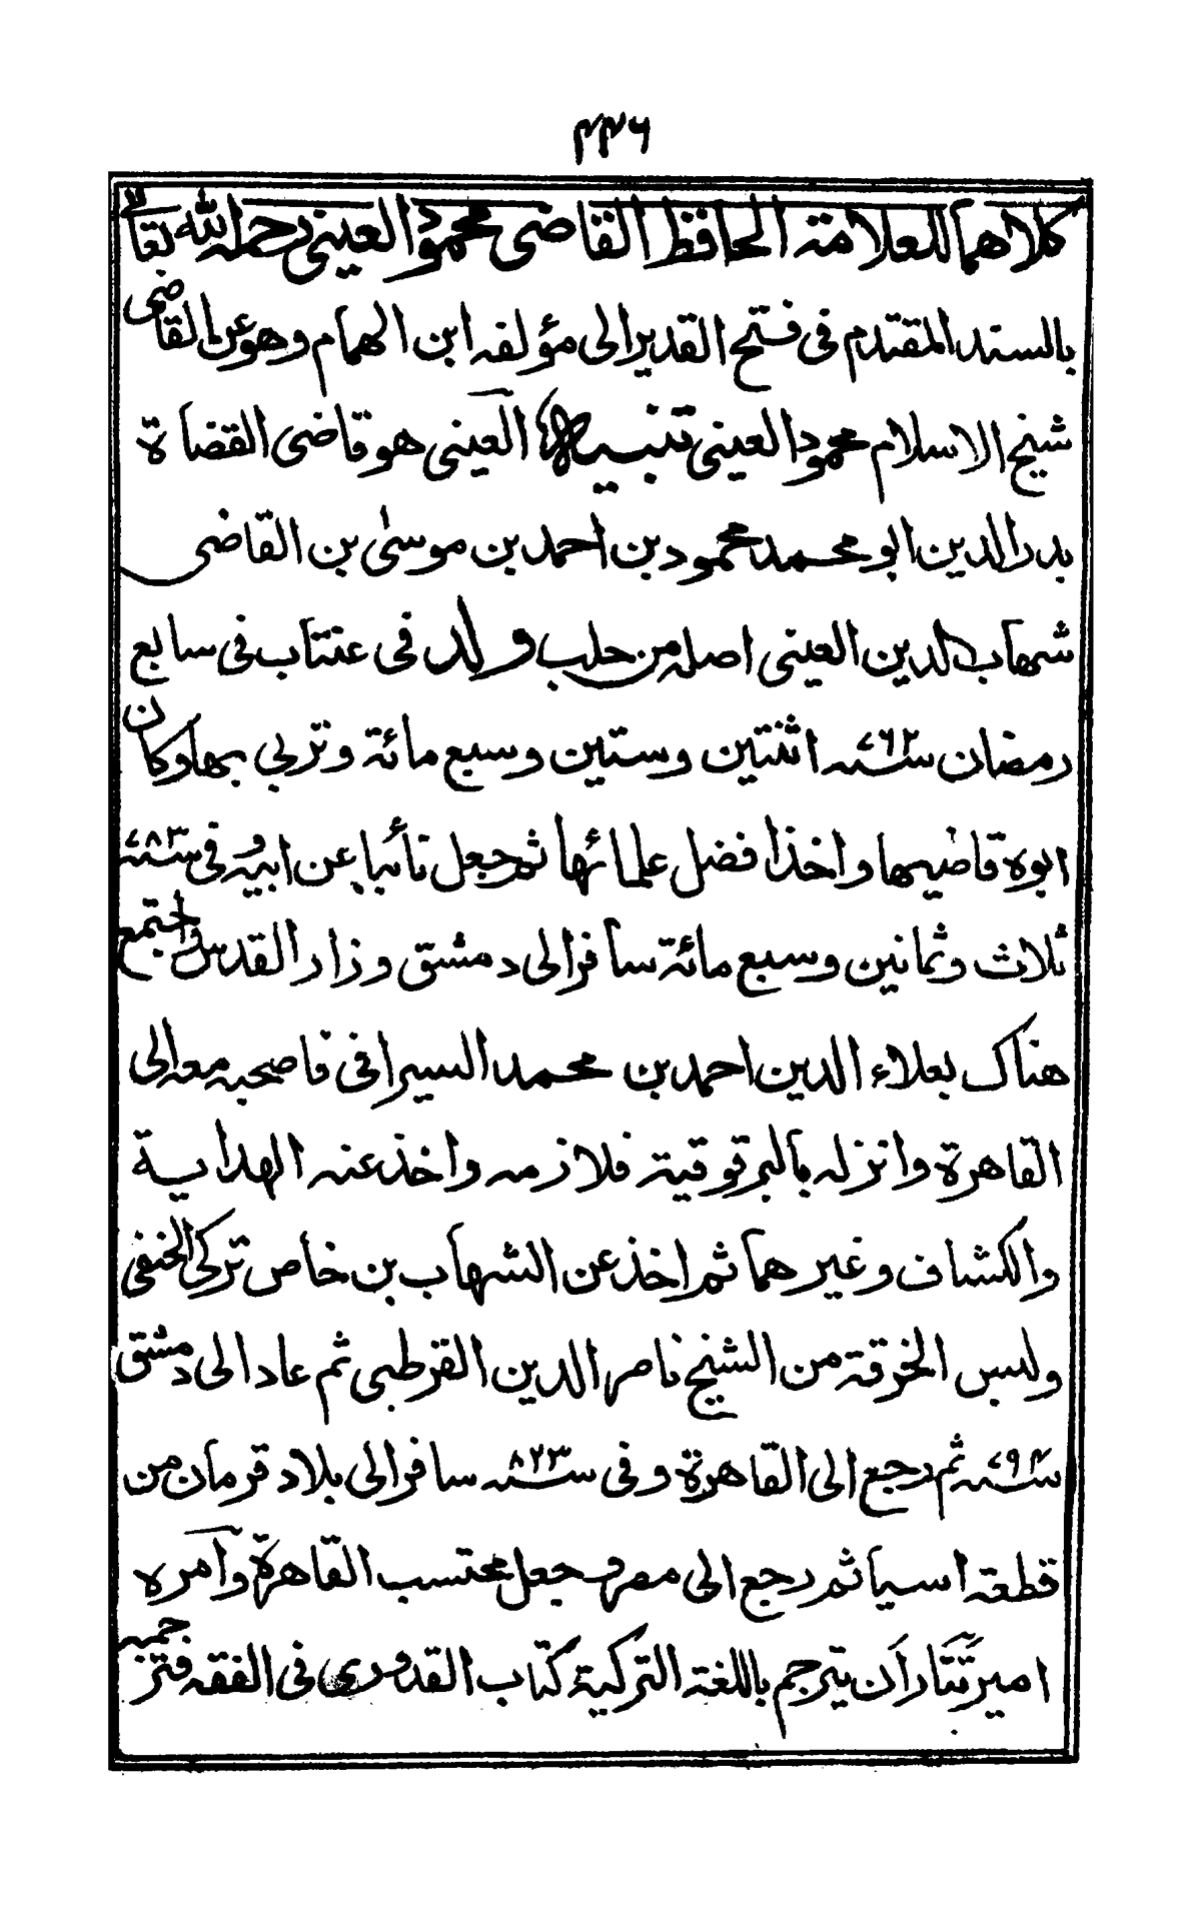 ۴۴۶
كلاهما للعلامة الحافظ القاضى محمود العينى رحمه الله تعالى
بالسند المقتدم فى فتح القدير الى مؤلفه ابن الهمام وهو عن القاضى
شيخ الاسلام محمود العينى تنبيه العينى هو قاضى القضاة
بدر الدين ابو محمد محمود بن احمد بن موسىٰ بن القاضى
شهاب الدين العينى اصله من حلب ولد فى عنتاب فى سابع
رمضان سنة ۷۶۲ اثنتين وستين وسبع مائة وتربي بها وكان
ابوه قاضيها واخذ افضل علمائها ثم جعل نائبا عن ابيه وفى سنة ۷۸۳
ثلاث وثمانين وسبع مائة سافر الى دمشق وزار القدس واجتمع
هناك بعلاء الدين احمد بن محمد السيرافى فاصحبه معه الى
القاهرة وانزله بالبرقوقية فلازمه واخذ عنه الهداية
والكشاف وغيرهما ثم اخذ عن الشهاب بن خاص تركى الحنفى
ولبس الخرقة من الشيخ ناصر الدين القرطبى ثم عاد الى دمشق
سنة ۷۹۴ ثم رجع الى القاهرة وفى سنة ۸۲۳ سافر الى بلاد قرمان من
قطعة اسيا ثم رجع الى مصر وجعل محتسب القاهرة وآمره
امير تتار ان يترجم باللغة التركية كتاب القدورى فى الفقه فترجمه